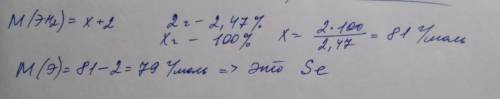 М(ЭН₂) = х + 2     2г – 2,47%
хг – 100%     х = 2·100 / 2,47 = 81 г/моль
М(Э) = 81 – 2 = 79 г/моль => это Se